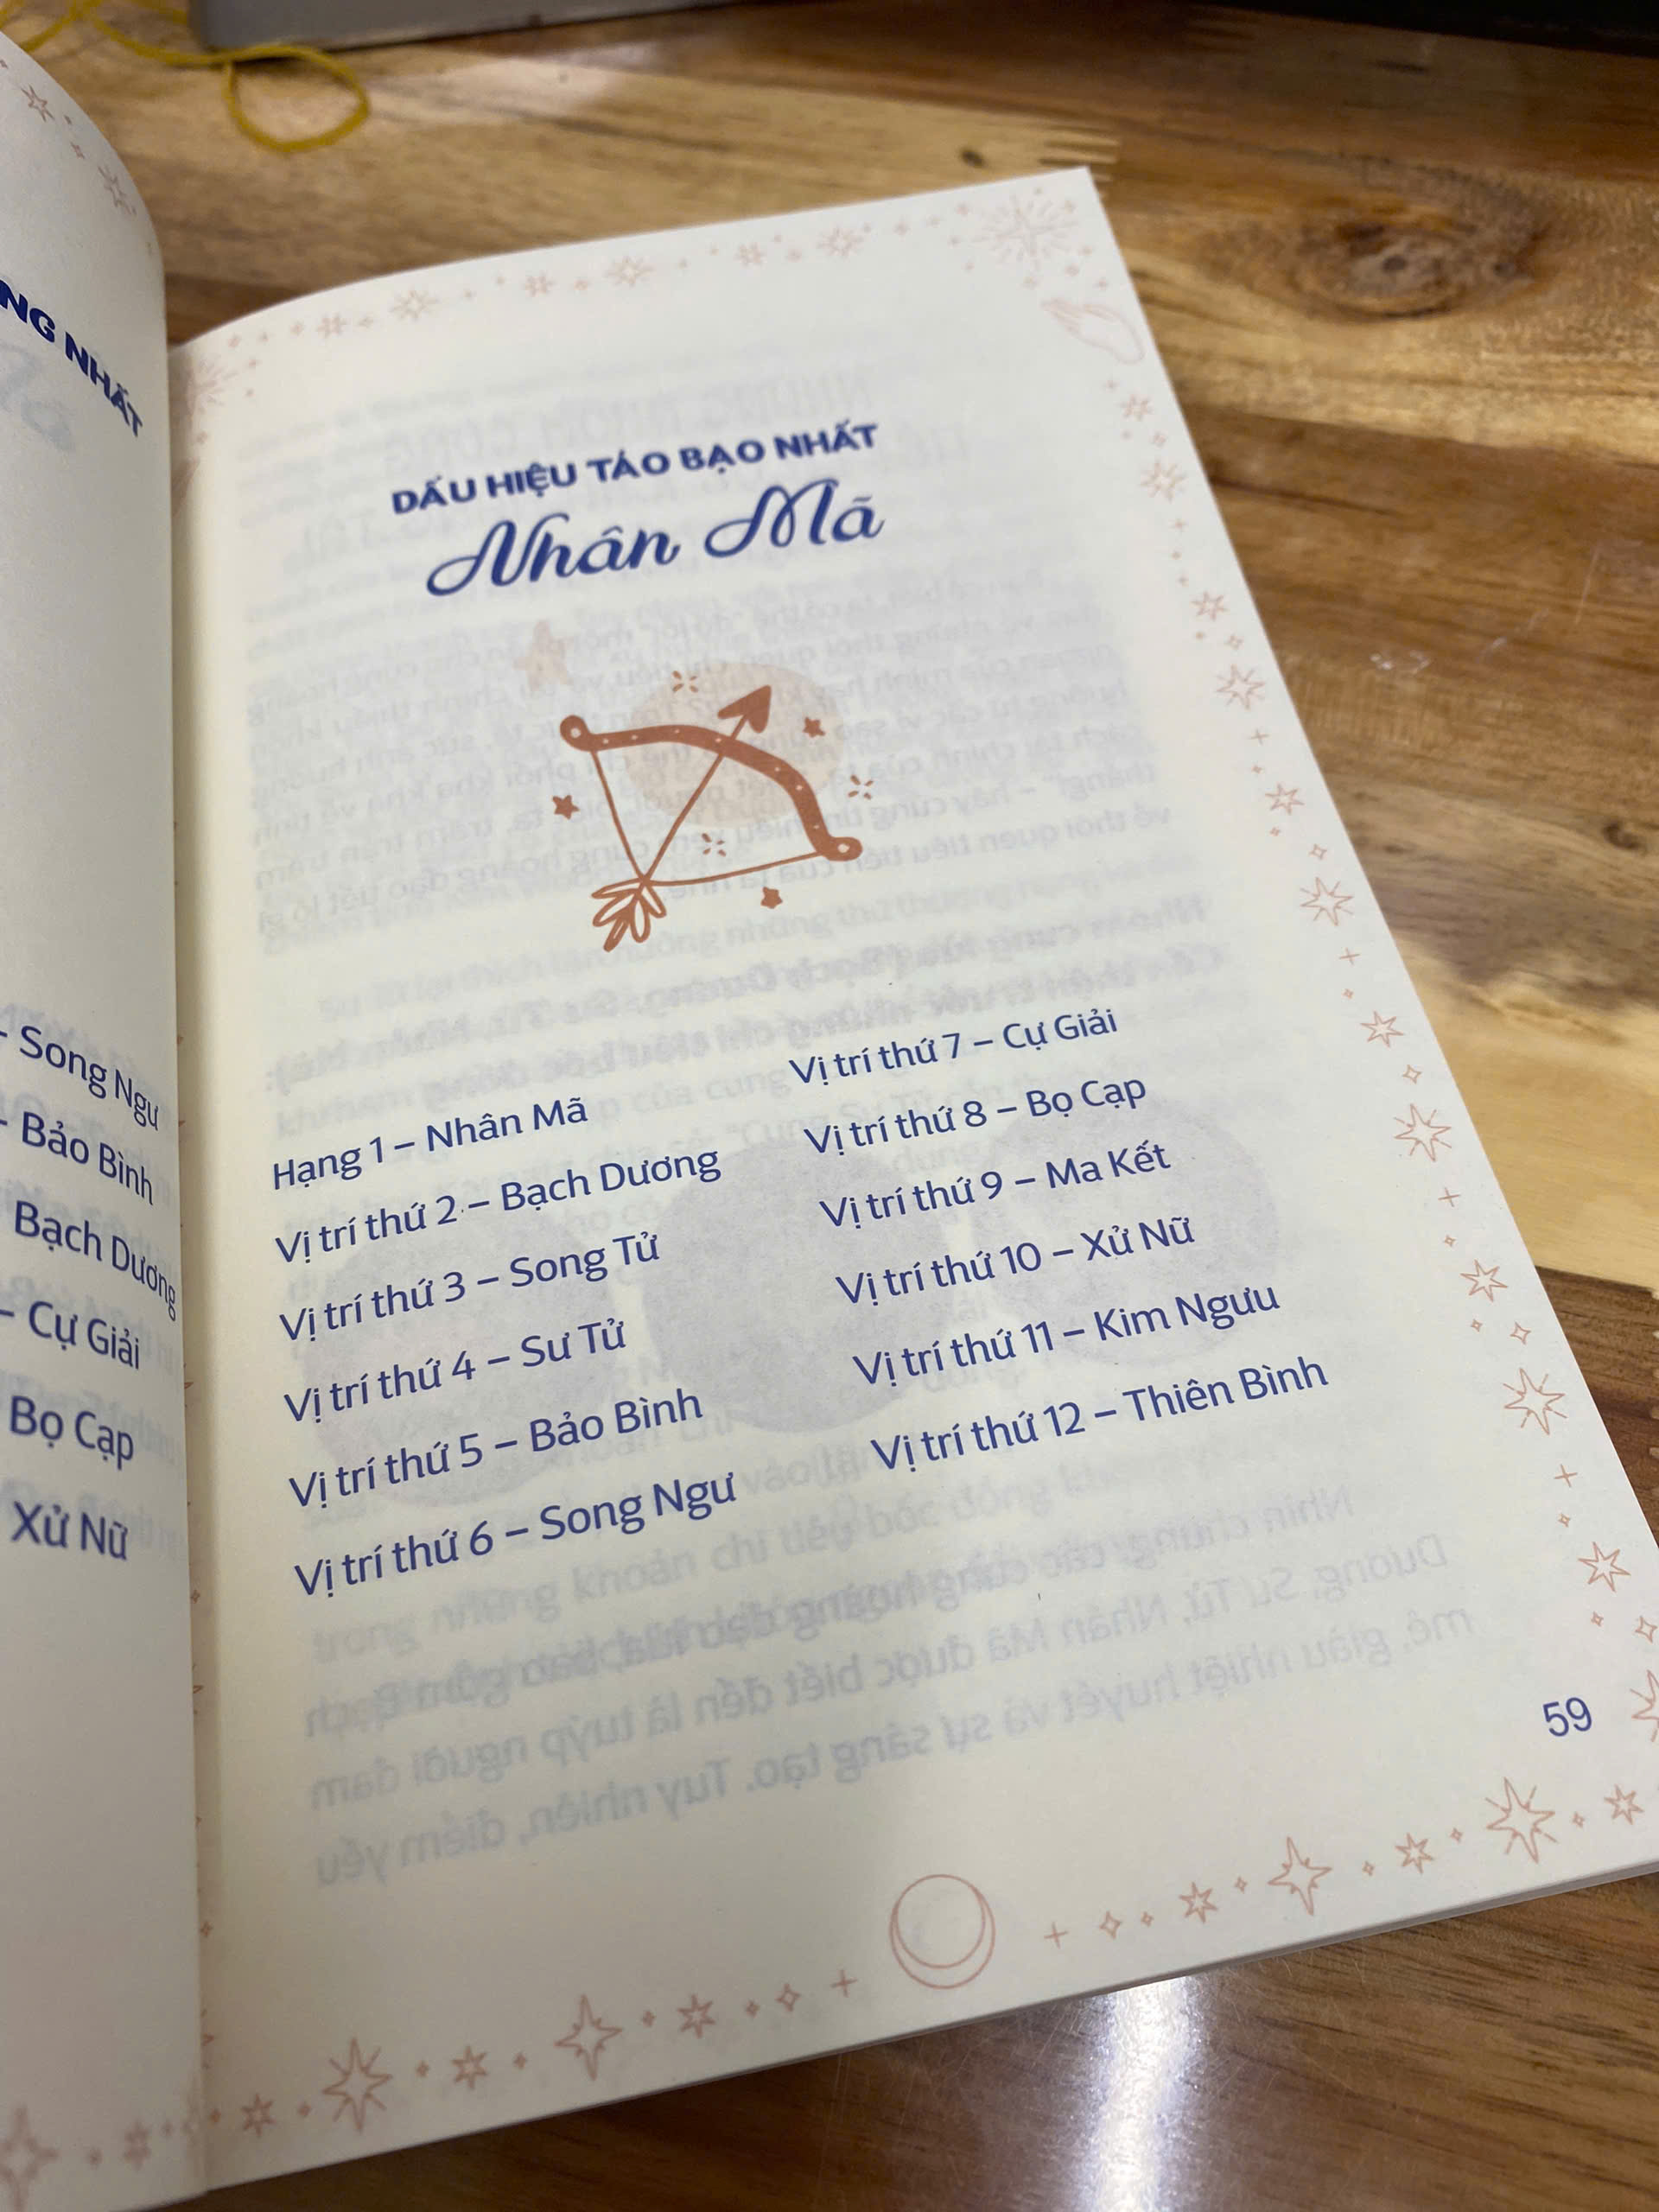 NG NHẤT
– Song Ngư
– Bảo Bình
Bạch Dương
– Cự Giải
Bọ Cạp
Xử Nữ
DẤU HIỆU TÁO BẠO NHẤT
Nhân Mã
Hạng 1 – Nhân Mã
Vị trí thứ 2 – Bạch Dương
Vị trí thứ 3 – Song Tử
Vị trí thứ 4 – Sư Tử
Vị trí thứ 5 – Bảo Bình
Vị trí thứ 6 – Song Ngư
Vị trí thứ 7 – Cự Giải
Vị trí thứ 8 – Bọ Cạp
Vị trí thứ 9 – Ma Kết
Vị trí thứ 10 – Xử Nữ
Vị trí thứ 11 – Kim Ngưu
Vị trí thứ 12 – Thiên Bình
59